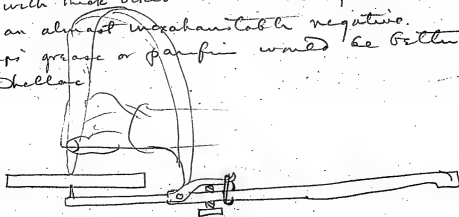 with thick
an almost inexhaustable negative.
grease or paraffin would be better
Shellac